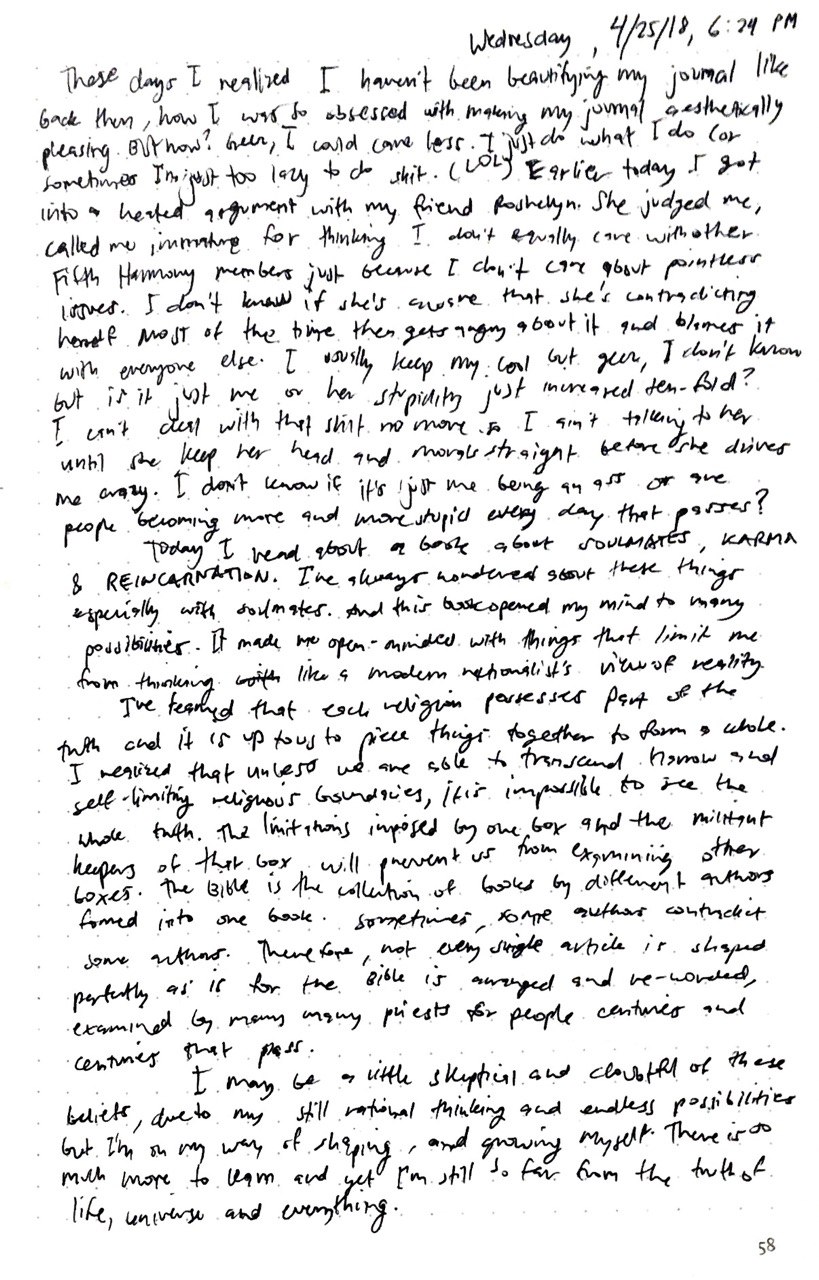 Wednesday, 4/25/18, 6:24 PM
These days I realized I haven't been beautifying my journal like
back then, how I was so obsessed with making my journal aesthetically
pleasing. But now? Geez, I could care less. I just do what I do (or
sometimes I'm just too lazy to do shit. (LOL) Earlier today I got
into a heated argument with my friend Roshelyn. She judged me,
called me immature for thinking I don't equally care with other
Fifth Harmony members just because I don't care about pointless
issues. I don't know if she's aware that she's contradicting
herself most of the time then gets angry about it and blames it
with everyone else. I usually keep my cool but geez, I don't know
but is it just me or her stupidity just increased ten-fold?
I can't deal with that shit no more so I ain't talking to her
until she keep her head and morals straight before she drives
me crazy. I don't know if it's just me being an ass or are
people becoming more and more stupid every day that passes?
Today I read about a book about SOULMATES, KARMA
& REINCARNATION. I've always wondered about these things
especially with soulmates. And this book opened my mind to many
possibilities. It made me open-minded with things that limit me
from thinking with like a modern rationalist's view of reality
I've learned that each religion possesses part of the
truth and it is up to us to piece things together to form a whole.
I realized that unless we are able to transcend narrow and
self-limiting religious boundaries, it is impossible to see the
whole truth. The limitations imposed by one box and the militant
keepers of that box will prevent us from examining other
boxes. The Bible is the collection of books by different authors
formed into one book. Sometimes, some authors contradict
some authors. Therefore, not every single article is shaped
perfectly as is for the Bible is arranged and re-worded,
examined by many many priests for people centuries and
centuries that pass.
I may be a little skeptical and doubtful of these
beliefs, due to my still rational thinking and endless possibilities
but I'm on my way of shaping, and growing myself. There is so
much more to learn and yet I'm still so far from the truth of
life, universe and everything.
58